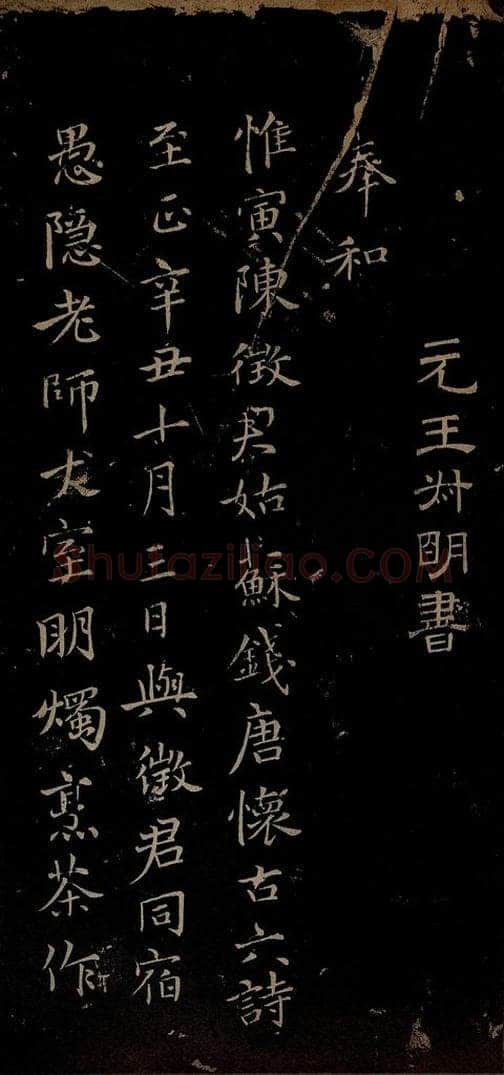 元王叔明書
奉和
惟寅陳徵君姑蘇錢唐懷古六詩
至正辛丑十月三日與徵君同宿
愚隱老師丈室明燭烹茶作
shufaziliao.com